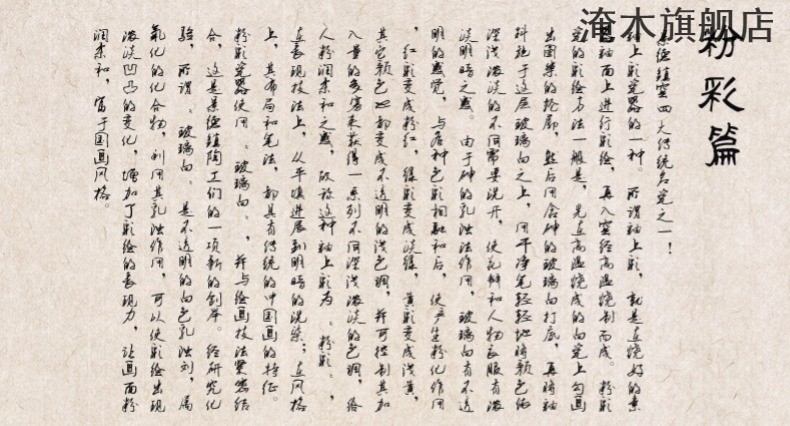 淹木旗舰店
粉彩篇
景德镇窑四大传统名瓷之一！
釉上彩瓷器的一种。所谓釉上彩，就是在烧好的素
器釉面上进行彩绘，再入窑经高温烧制而成。粉彩
瓷的彩绘方法一般是，先在高温烧成的白瓷上勾画
出图案的轮廓，然后用含砷的玻璃白打底，再将釉
料施于这层玻璃白之上，用干净笔轻轻地将颜色依
深浅浓淡的不同需要洗开，使花瓣和人物衣服有浓
淡明暗之感。由于砷的乳浊法作用，玻璃白有不透
明的感觉，与各种色彩相融和后，便产生粉化作用
，红彩变成粉红，绿彩变成淡绿，黄彩变成浅黄，
其它颜色也都变成不透明的浅色调，并可控制其加
入量的多寡来获得一系列不同深浅浓淡的色调，给
人粉润柔和之感，故称这种釉上彩为、粉彩、，
在表现技法上，从平填进展到明暗的洗染；在风格
上，其布局和笔法，都具有传统的中国画的特征。
粉彩瓷器使用、玻璃白、，并与绘画技法紧密结
合，这是景德镇陶工们的一项新的创举。经研究化
验，所谓、玻璃白、是不透明的白色乳浊剂，属
氧化的化合物，利用其乳浊作用，可以使彩绘出现
浓淡凹凸的变化，增加了彩绘的表现力，让画面粉
润柔和，富于国画风格。